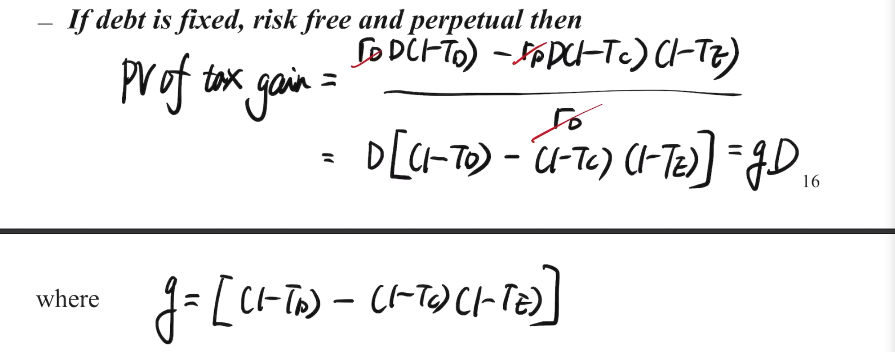 – If debt is fixed, risk free and perpetual then
PV of tax gain = r_D D(1-T_D) - r_D D(1-T_C)(1-T_E) / r_D
= D[(1-T_D) - (1-T_C)(1-T_E)] = gD
16
where g = [(1-T_D) - (1-T_C)(1-T_E)]